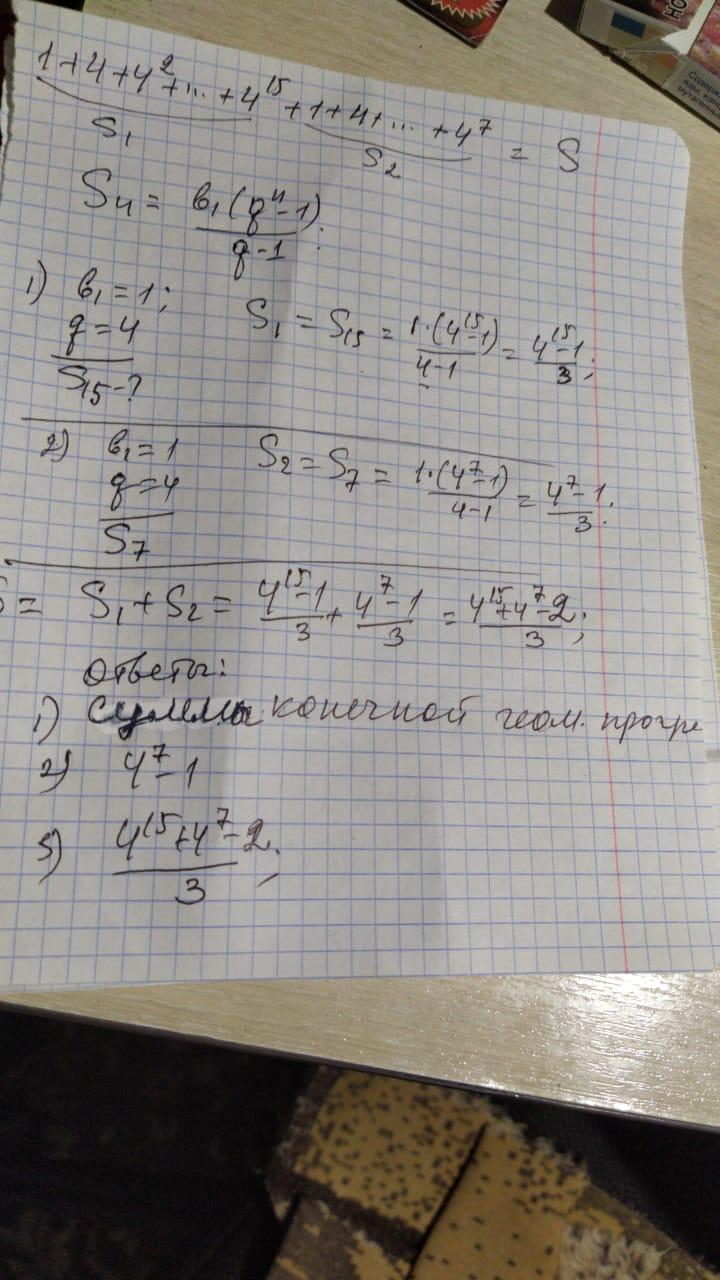 1+4+4²+...+4¹⁵+1+4+...+4⁷ = S
S₁
S₂
Sₙ = b₁(qⁿ-1)/(q-1);
1) b₁=1;
q=4
S₁₅-?
S₁ = S₁₅ = 1·(4¹⁵-1)/(4-1) = (4¹⁵-1)/3;
2) b₁=1
q=4
S₇
S₂ = S₇ = 1·(4⁷-1)/(4-1) = (4⁷-1)/3;
S = S₁+S₂ = (4¹⁵-1)/3 + (4⁷-1)/3 = (4¹⁵+4⁷-2)/3;
Ответы:
1) Сумма конечной геом. прогре
2) 4⁷-1
3) (4¹⁵+4⁷-2)/3;
НО
Содерж
яды, кан
мутагенны